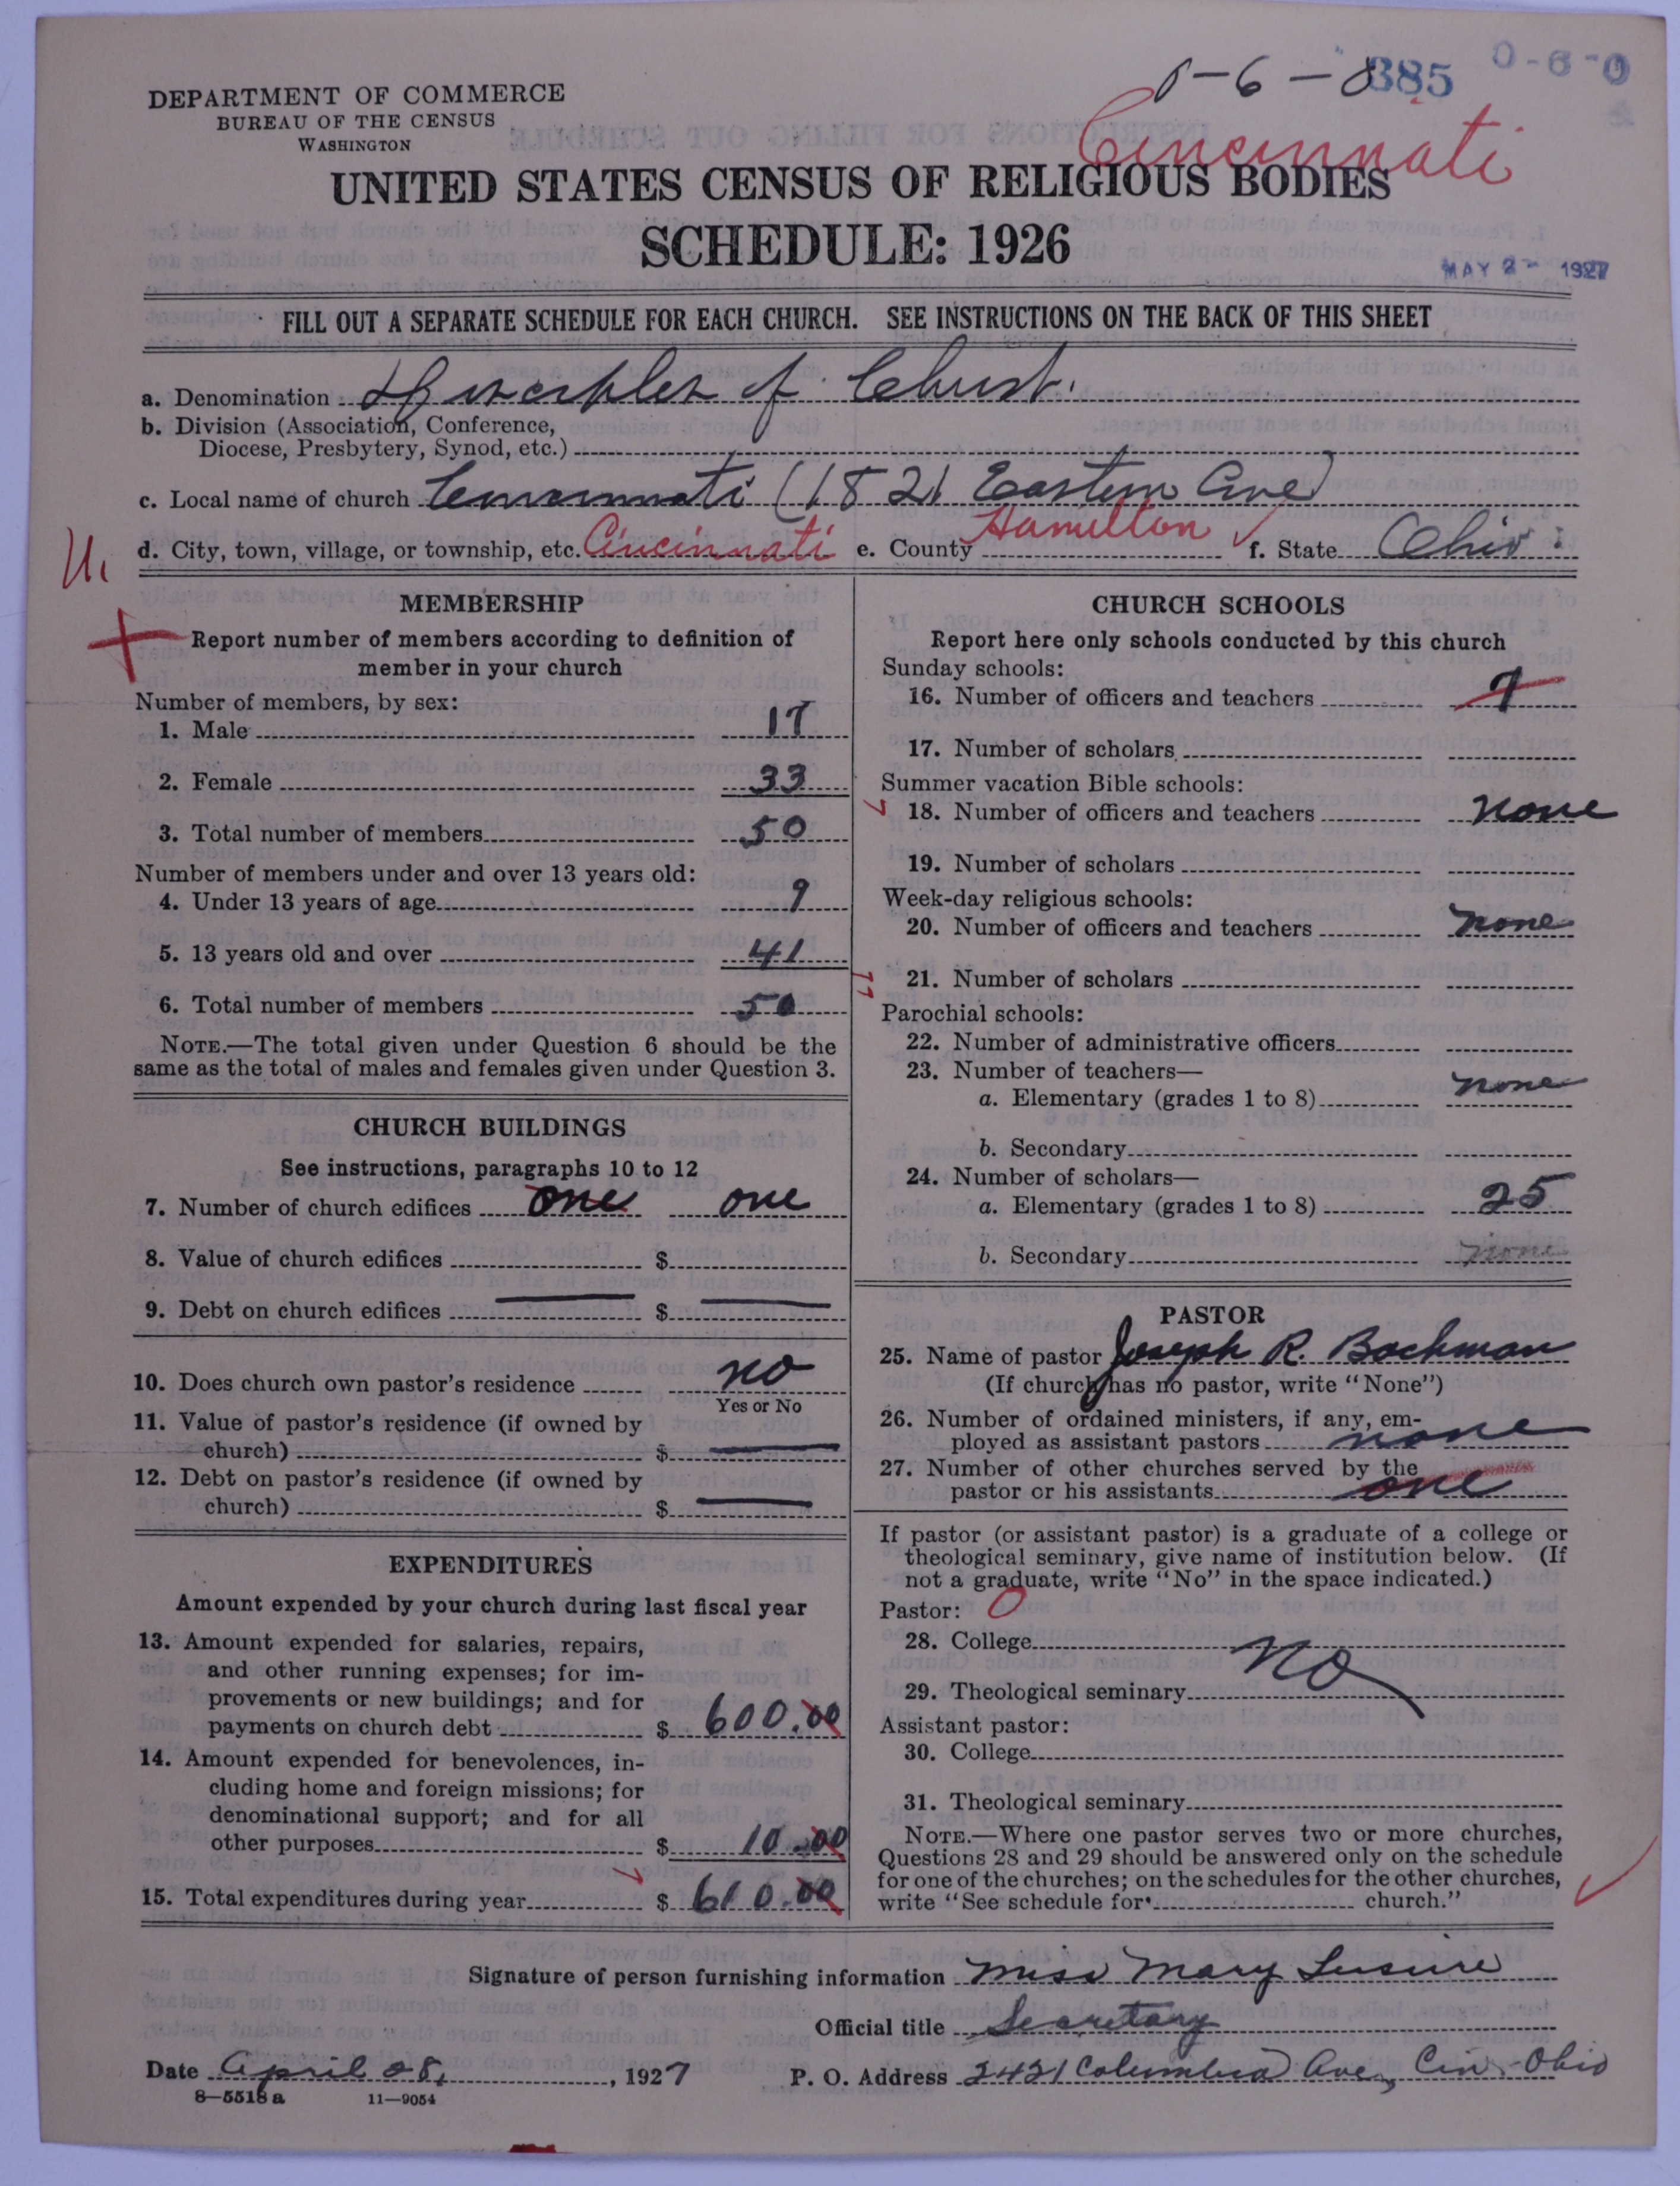 0-6-0
385
0-6-0
DEPARTMENT OF COMMERCE
BUREAU OF THE CENSUS
WASHINGTON
Cincinnati
UNITED STATES CENSUS OF RELIGIOUS BODIES
SCHEDULE: 1926
MAY 2- 1927
FILL OUT A SEPARATE SCHEDULE FOR EACH CHURCH. SEE INSTRUCTIONS ON THE BACK OF THIS SHEET
a. Denomination Disciples of Christ.
b. Division (Association, Conference,
Diocese, Presbytery, Synod, etc.)
c. Local name of church Cincinnati (1821 Eastern Ave)
d. City, town, village, or township, etc. Cincinnati e. County Hamilton f. State Ohio
U.
MEMBERSHIP
Report number of members according to definition of
member in your church
Number of members, by sex:
1. Male 17
2. Female 33
3. Total number of members 50
Number of members under and over 13 years old:
4. Under 13 years of age 9
5. 13 years old and over 41
6. Total number of members 50
NOTE.—The total given under Question 6 should be the
same as the total of males and females given under Question 3.
CHURCH BUILDINGS
See instructions, paragraphs 10 to 12
7. Number of church edifices one one
8. Value of church edifices $
9. Debt on church edifices $
10. Does church own pastor's residence no
Yes or No
11. Value of pastor's residence (if owned by
church) $
12. Debt on pastor's residence (if owned by
church) $
EXPENDITURES
Amount expended by your church during last fiscal year
13. Amount expended for salaries, repairs,
and other running expenses; for im-
provements or new buildings; and for
payments on church debt $ 600.00
14. Amount expended for benevolences, in-
cluding home and foreign missions; for
denominational support; and for all
other purposes $ 10.00
15. Total expenditures during year $ 610.00
CHURCH SCHOOLS
Report here only schools conducted by this church
Sunday schools:
16. Number of officers and teachers 7
17. Number of scholars
Summer vacation Bible schools:
18. Number of officers and teachers none
19. Number of scholars
Week-day religious schools:
20. Number of officers and teachers none
21. Number of scholars
Parochial schools:
22. Number of administrative officers
23. Number of teachers—
a. Elementary (grades 1 to 8) none
b. Secondary
24. Number of scholars—
a. Elementary (grades 1 to 8) 25
b. Secondary none
PASTOR
25. Name of pastor Joseph R. Bachman
(If church has no pastor, write "None")
26. Number of ordained ministers, if any, em-
ployed as assistant pastors none
27. Number of other churches served by the
pastor or his assistants one
If pastor (or assistant pastor) is a graduate of a college or
theological seminary, give name of institution below. (If
not a graduate, write "No" in the space indicated.)
Pastor: 0
28. College no
29. Theological seminary
Assistant pastor:
30. College
31. Theological seminary
NOTE.—Where one pastor serves two or more churches,
Questions 28 and 29 should be answered only on the schedule
for one of the churches; on the schedules for the other churches,
write "See schedule for church."
Signature of person furnishing information Miss Mary
Official title Secretary
Date April 28, 1927 P. O. Address 2421 Columbia Ave, Cin. Ohio
8-5518 a 11-9054